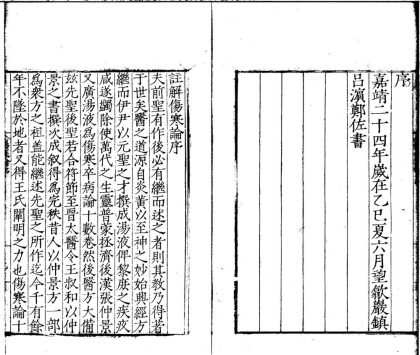 序
嘉靖二十四年歲在乙巳夏六月望歙巖鎮
呂濱鄭佐書
註解傷寒論序
夫前聖有作後必有繼而述之者則其教乃得著
于世矣醫之道源自炎黃以至神之妙始興經方
繼而伊尹以元聖之才撰成湯液俾黎庶之疾疢
咸遂蠲除使萬代之生靈普蒙拯濟後漢張仲景
又廣湯液為傷寒卒病論十數卷然後醫方大備
茲先聖後聖若合符節至晉太醫令王叔和以仲
景之書撰次成叙得為完秩昔人以仲景方一部
為衆方之祖蓋能繼述先聖之所作迄今千有餘
年不墜於地者又得王氏闡明之力也傷寒論十